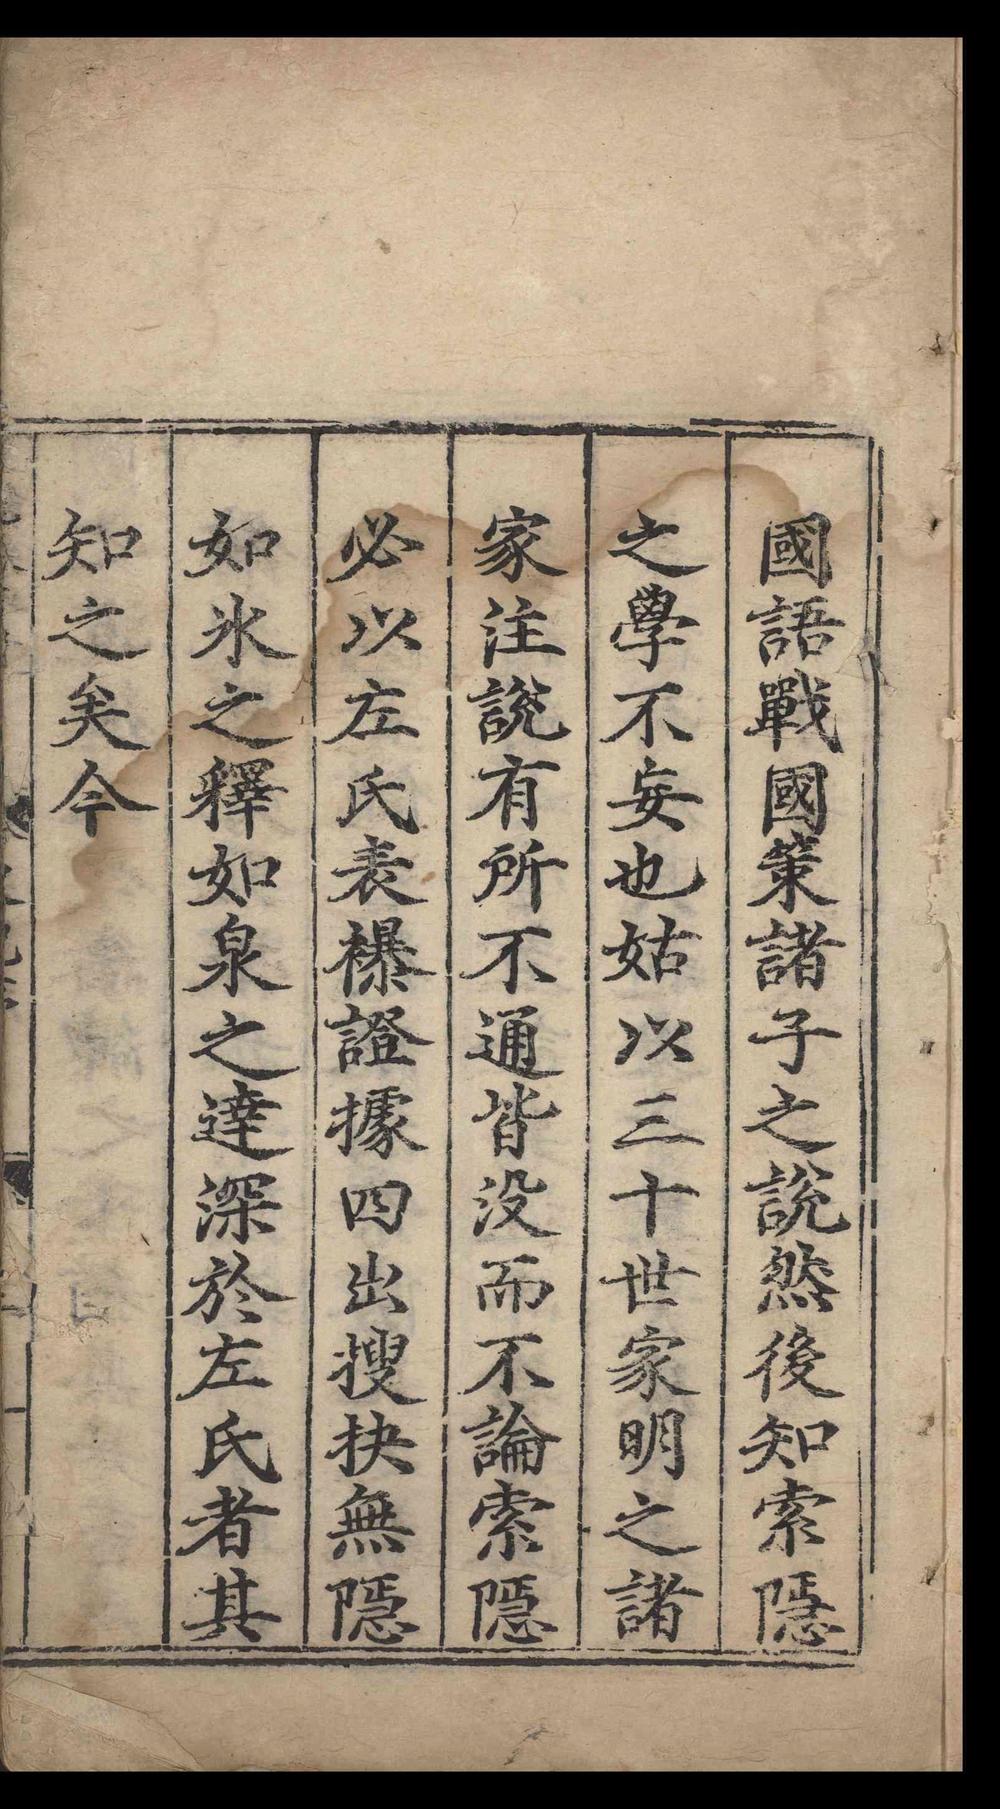 國語戰國策諸子之說然後知索隱
之學不妄也姑以三十世家明之諸
家注說有所不通皆没而不論索隱
必以左氏表襮證據四出搜抉無隱
如氷之釋如泉之達深於左氏者其
知之矣今